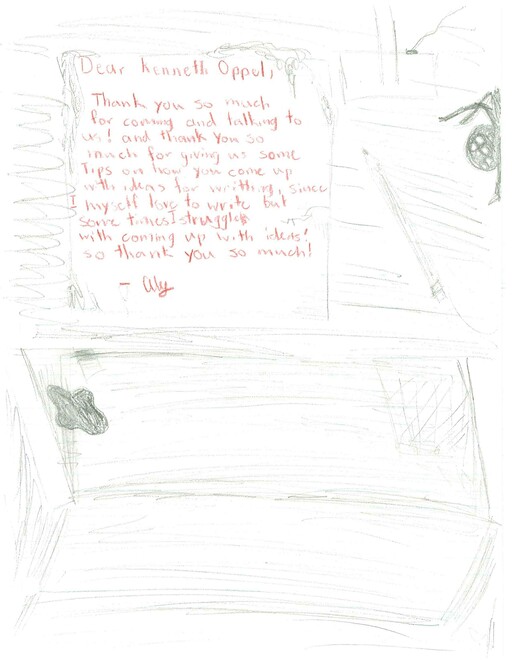 Dear Kenneth Oppel,
Thank you so much
for coming and talking to
us! and thank you so
much for giving us some
Tips on how you come up
with ideas for writting, since
I myself love to write but
some times I struggle
with coming up with ideas!
so thank you so much!
- Aly